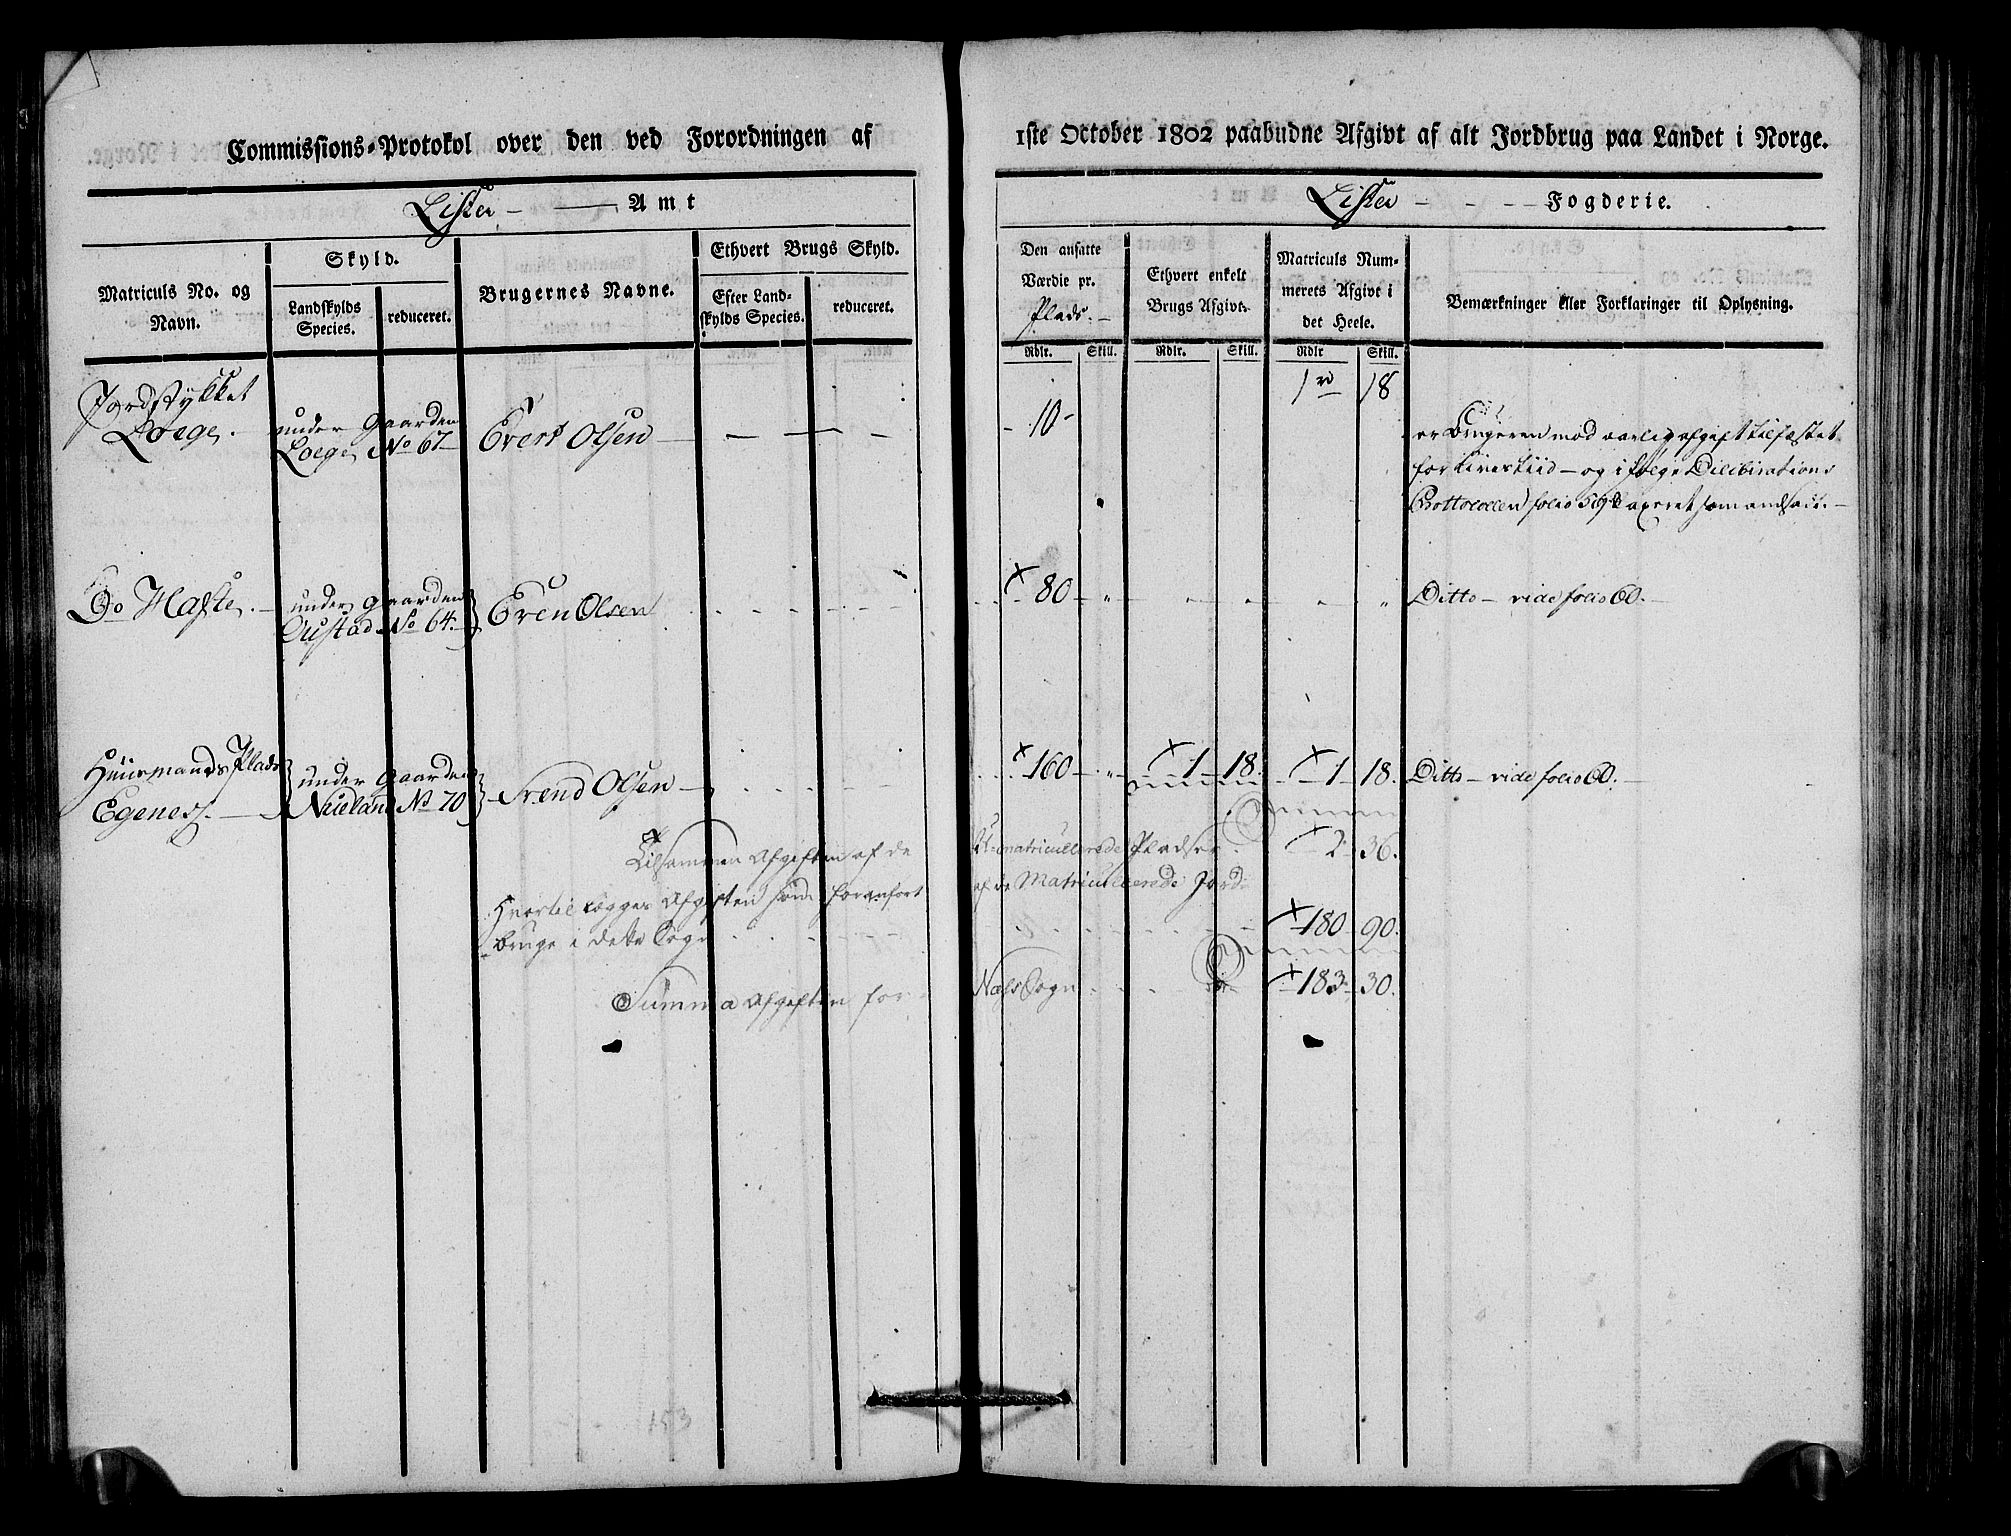 Commissions-Protokol over den ved Forordningen af
1ste October 1802 paabudne Afgivt af alt Jordbrug paa Landet i Norge.
Lister Amt
Lister Fogderie.
Matriculs No. og
Navn.
Skyld.
Landskylds
Species.
reduceret.
Brugernes Navne.
Ethvert Brugs Skyld.
Efter Land-
skylds Species.
reduceret.
Den ansatte
Værdie pr.
Plads.
Ethvert enkelt
Brugs Afgivt.
Matriculs Num-
merets Afgivt i
det Heele.
Bemærkninger eller Forklaringer til Oplysning.
Rdlr. Skill. Rdlr. Skill. Rdlr Skill.
1 18
Jordstykket
Loege.
under Gaarden
Loege No 67
Evert Olsen
10
er Brugeren mod aarlig afgift tilfæstet
for Livestiid - og i følge Dilibirations
Prottocollen folio 59 taxeret som andsadt.
Do Hafte.
under Gaarden
No 64.
Even Olsen
80
Ditto - vide folio 60.
Huusmands Plads
Egenes.
under Gaarden
Nueland No 70
Svend Olsen
160 1 18. 1 18.
Ditto - vide folio 60.
Tilsammen Afgiften af de U-matricullerede Pladser 2 36.
Hvortil lægges Afgiften som foranført af de Matricullerede Jord-
bruge i dette Sogn 180 90.
Summa Afgiften for Næss Sogn 183 30.
153